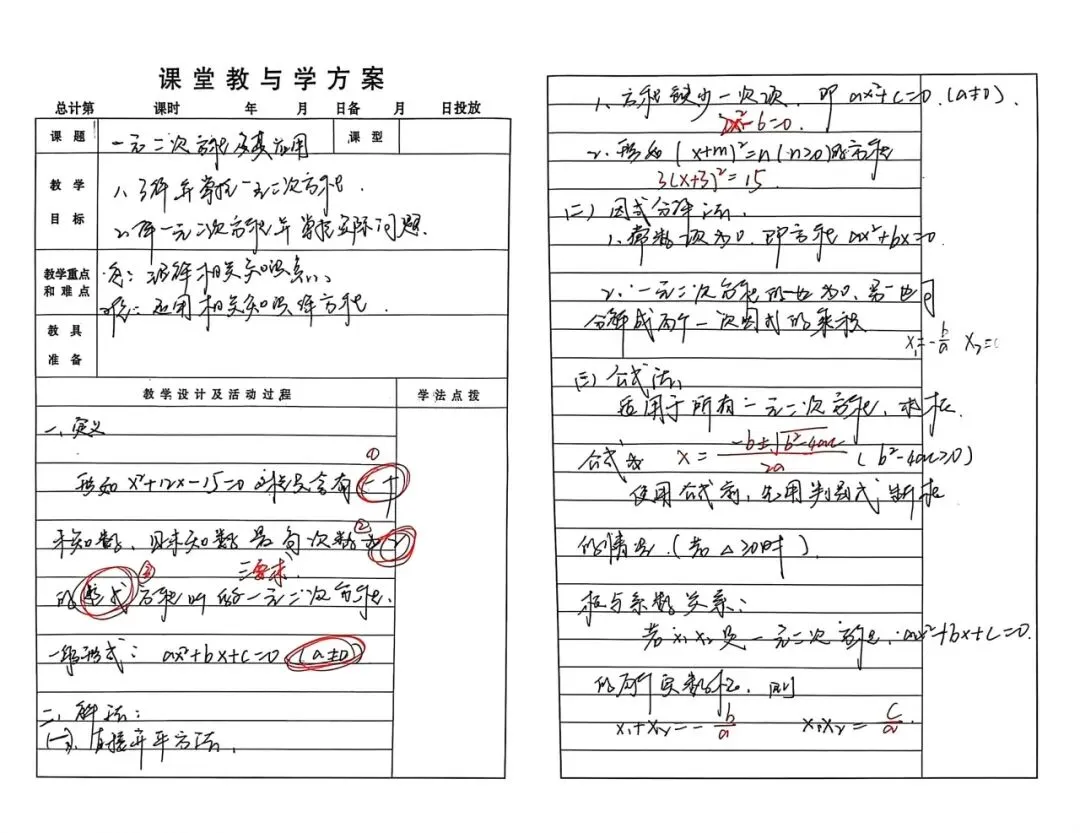 课堂教与学方案
总计第 课时 年 月 日备 月 日投放
课题 一元二次方程及其应用 课型
教学目标 1、了解并掌握一元二次方程.
2、解一元二次方程并掌握实际问题.
教学重点和难点 重：理解相关知识点、
难：应用相关知识解方程.
教具准备
教学设计及活动过程 学法点拨
一、定义
①
形如x²+12x-15=0 这样只含有一个
②
未知数，且未知数最高次数为2
③ 三要求
的整式方程叫做一元二次方程.
一般形式：ax²+bx+c=0 (a≠0)
二、解法：
(一)、直接开平方法、
1、方程缺少一次项，即 ax²+c=0.(a≠0).
2x²-6=0.
2、形如(x+m)²=n(n≥0)的方程
3(x+3)²=15.
(二)因式分解法、
1、常数项为0，即方程 ax²+bx=0.
2、一元二次方程的一边为0，另一边可
分解成两个一次因式的乘积
x₁=-b/a x₂=0
(三)公式法、
适用于所有一元二次方程，求根
公式为 x=(-b±√(b²-4ac))/2a (b²-4ac≥0)
使用公式前，先用判别式判断根
的情况.(若△≥0时).
根与系数关系：
若x₁x₂是一元二次方程：ax²+bx+c=0.
的两个实数根，则
x₁+x₂=-b/a x₁x₂=c/a.